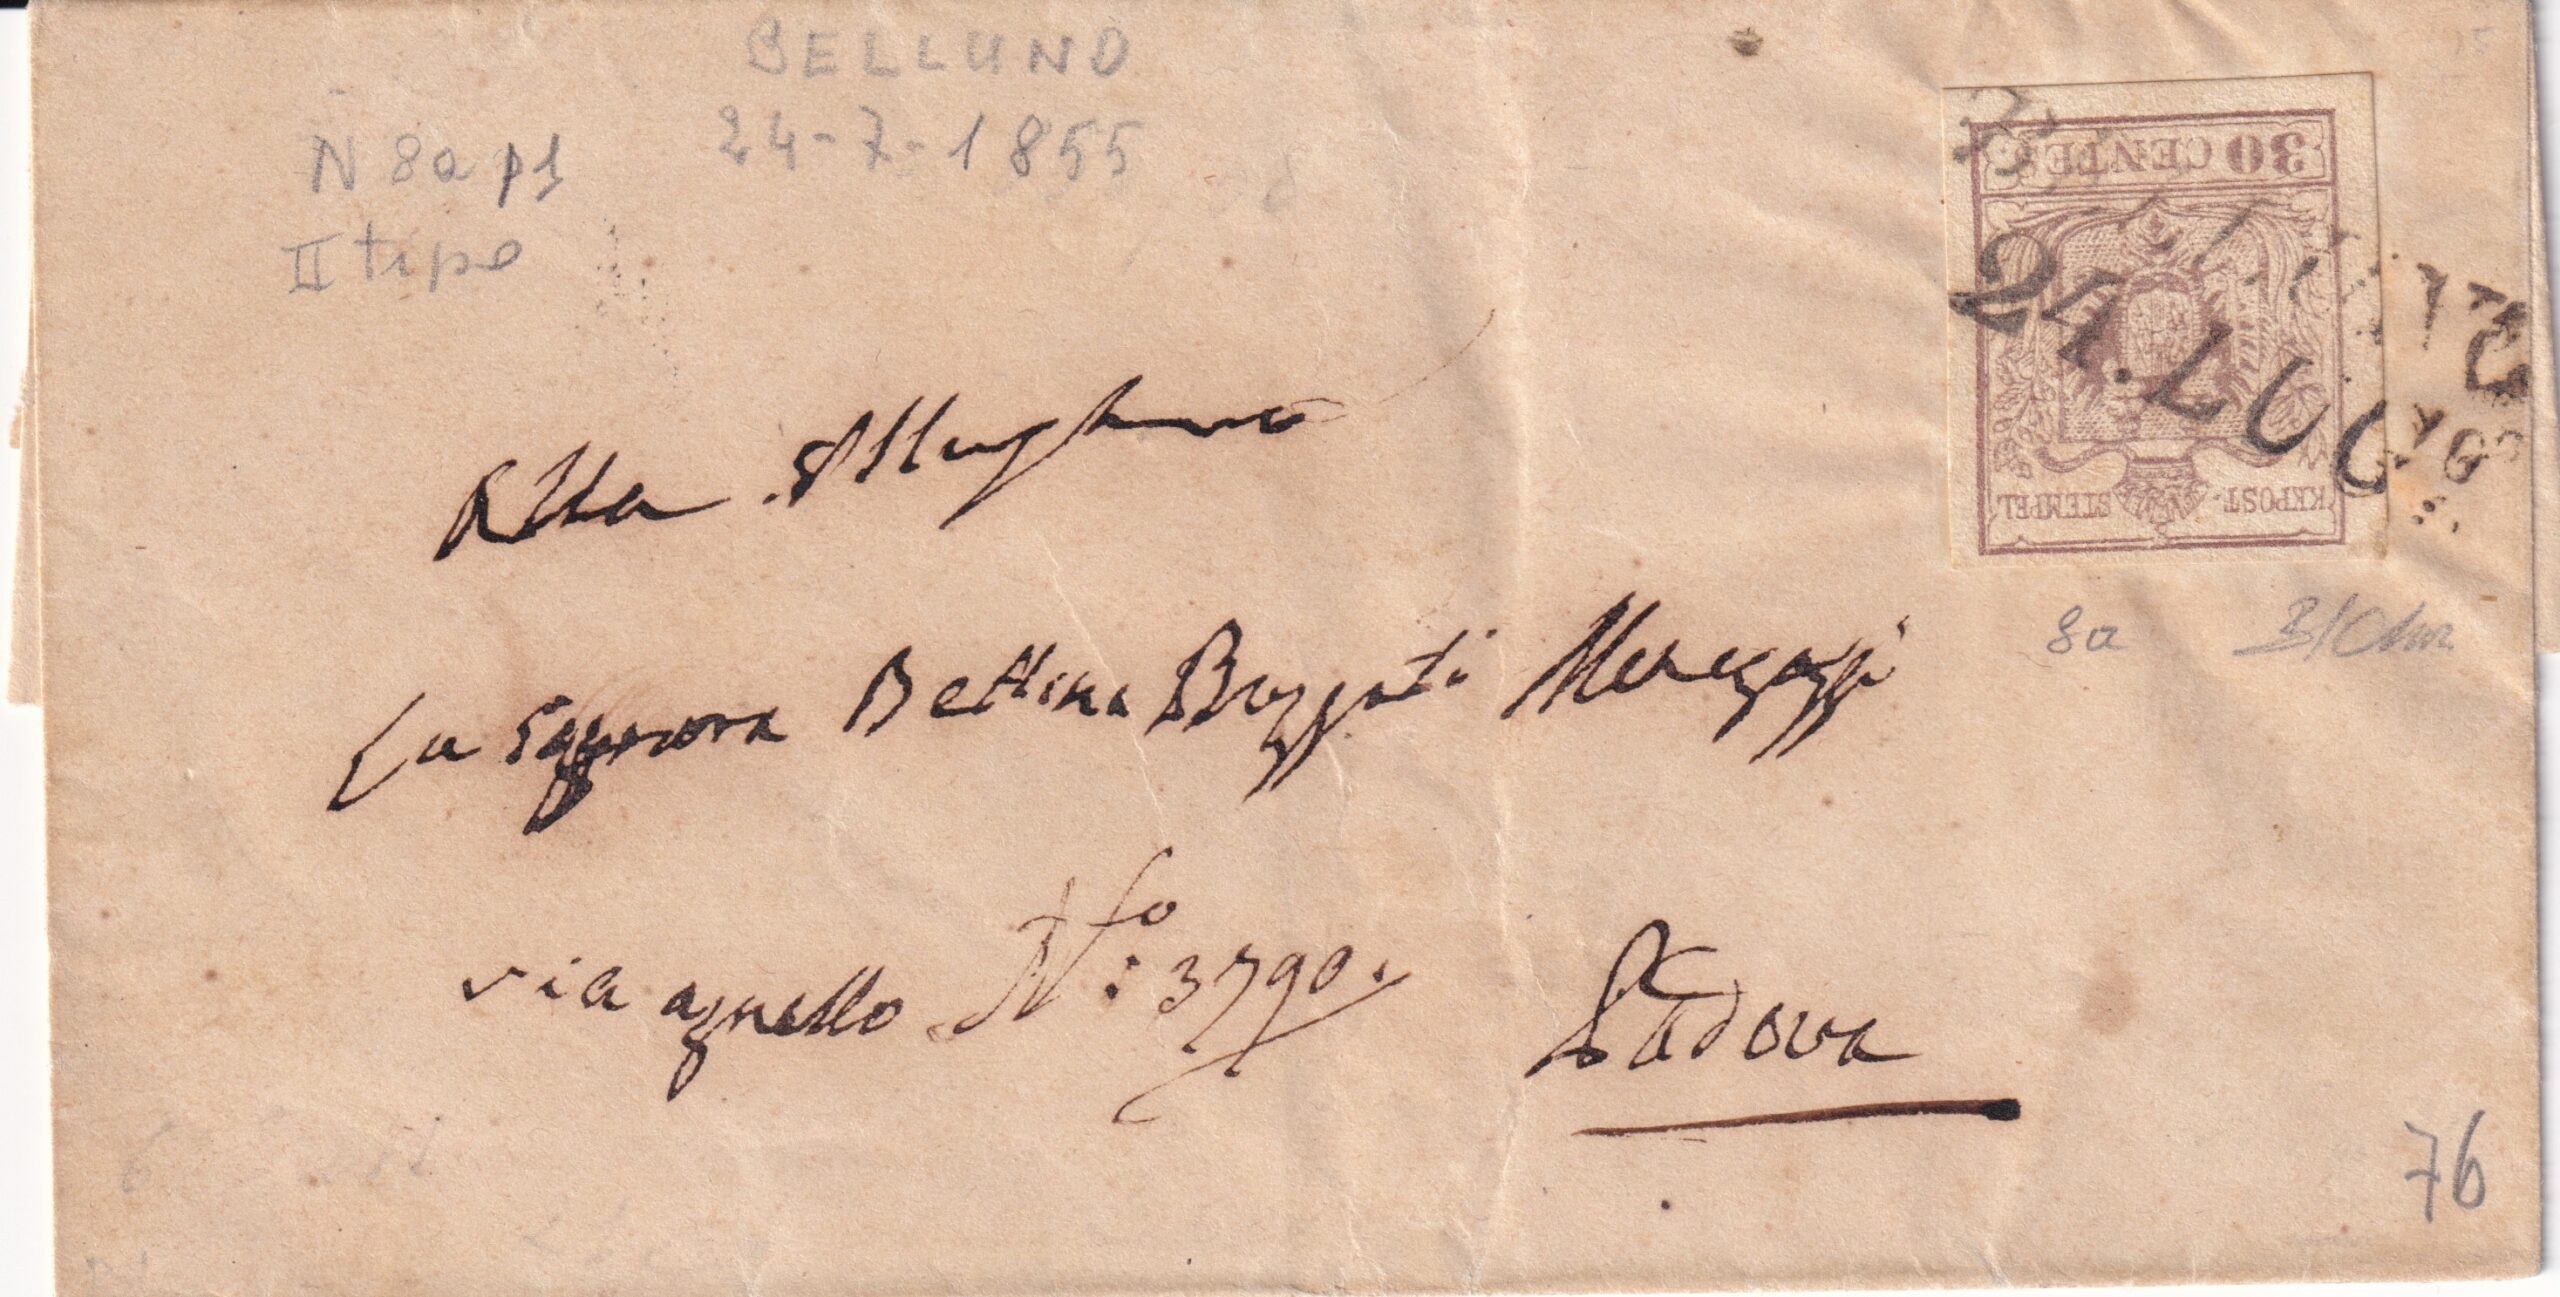 BELLUNO
24-7-1855
N 8a p1
II tipo
30 CENTES
24. LUG
KKPOST-STEMPEL
8a
Alla
La Signora Bettina Buzzati Meregazzi
via agnello No: 3790.
Padova
76